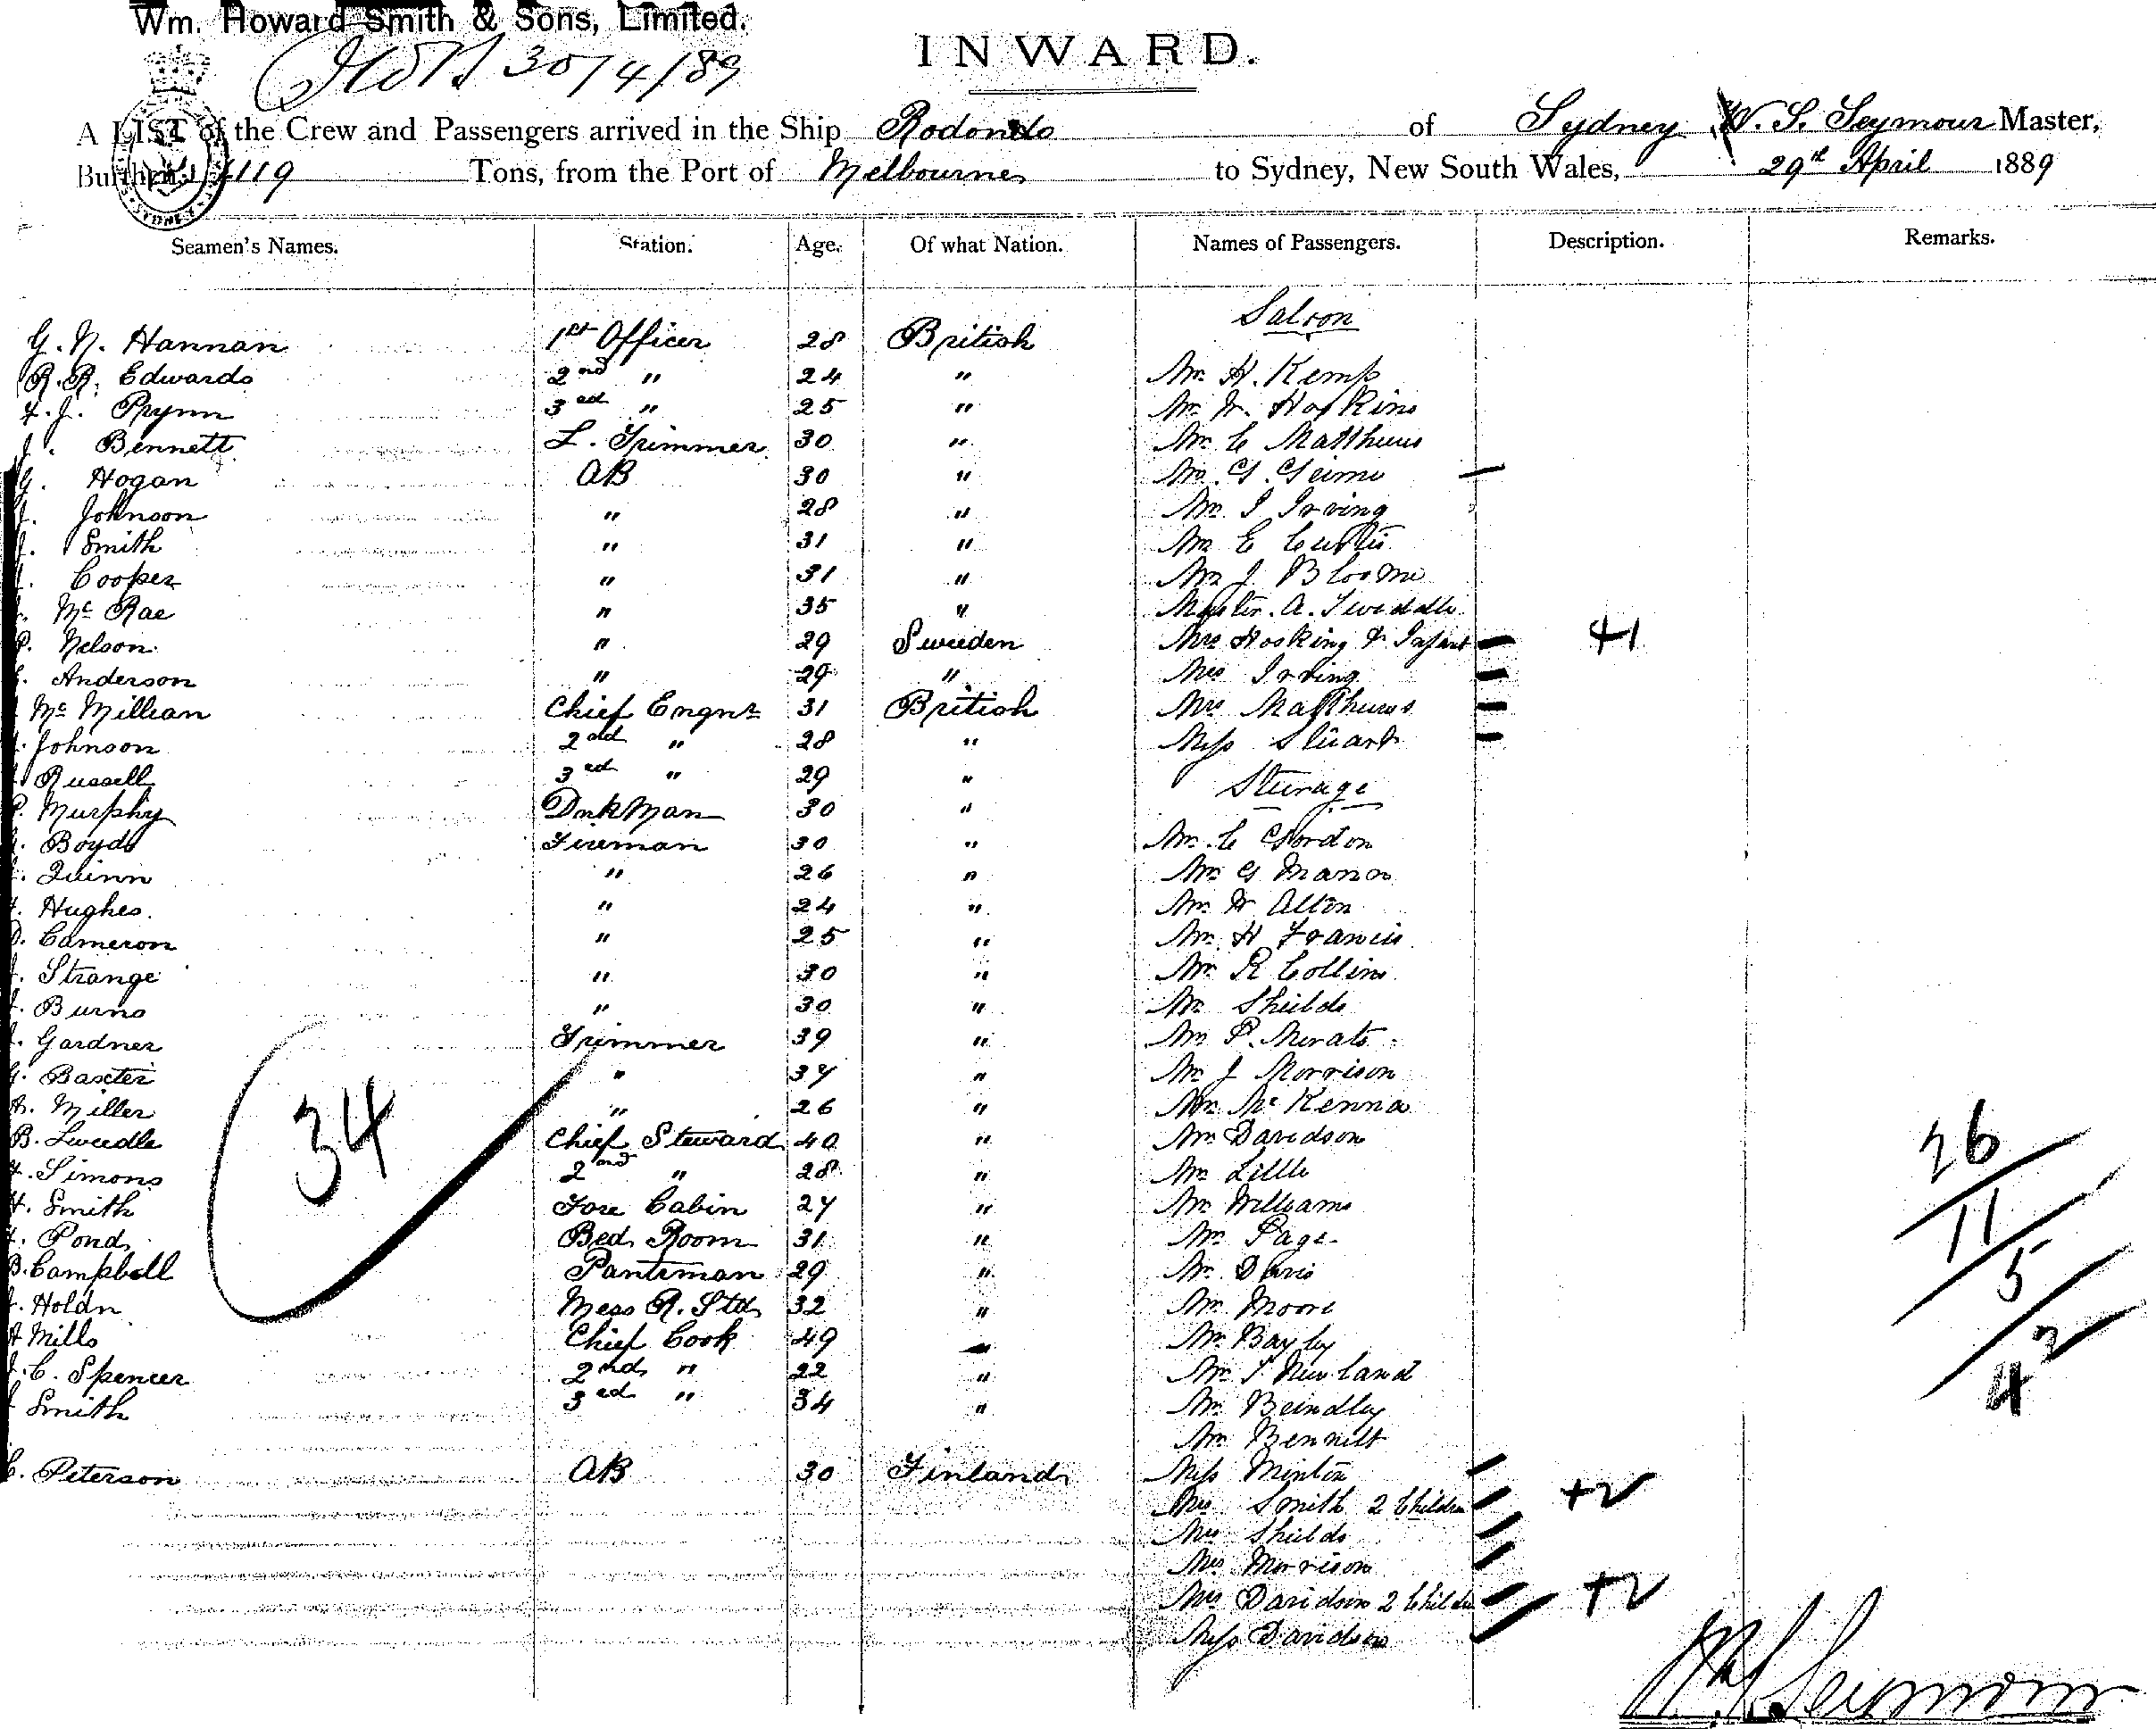 Wm. Howard Smith & Sons, Limited.
30/4/89
INWARD.
A LIST of the Crew and Passengers arrived in the Ship Rodondo of Sydney, W. S. Seymour Master,
Burthen 1119 Tons, from the Port of Melbourne to Sydney, New South Wales, 29th April 1889
Seamen's Names. Station. Age. Of what Nation. Names of Passengers. Description. Remarks.
Saloon
G. N. Hannan 1st Officer 28 British
R. R. Edwards 2nd " 24 " Mr H. Kemp
F. J. Prynn 3ed " 25 " Mr W. Hopkins
J. Bennett L. Trimmer 30 " Mr C Matthews
G. Hogan AB 30 "
J. Johnson " 28 " Mr I Irving
J. Smith " 31 " Mr E Curtis
J. Cooper " 31 " Mr J Bloome
Mc Rae " 35 " Master. A. Tweddle
P. Nelson " 29 Sweden Mrs Hosking & Infant +1
Anderson " 29 " Mrs Irving
Mc Millian Chief Engnr 31 British Mrs Matthews
Johnson 2nd " 28 " Miss Stuart
Russell 3ed " 29 " Steerage
P. Murphy DnkMan 30 "
Boyd Fireman 30 " Mr C Gordon
Quinn " 26 " Mr G Mann
Hughes " 24 " Mr W Alton
D. Cameron " 25 " Mr H Francis
J. Strange " 30 " Mr R Collins
Burns " 30 " Mr Shields
J. Gardner Trimmer 39 " Mr P.
G. Baxter " 37 " Mr J Morrison
A. Miller " 26 " Mr McKenna
B. Tweedle Chief Steward 40 " Mr Davidson 26
Simons 2nd " 28 " Mr Little
H. Smith Fore Cabin 27 " Mr Williams 11
Pond Bed Room 31 " Mr Page
B. Campbell Pantrman 29 " Mr Davis 5
J. Holdn Mess R. Std 32 " Mr Moore
A Mills Chief Cook 49 " Mr Bayley 2
J. C. Spencer 2nd " 22 " Mr Newland 4
Smith 3ed " 34 " Mr Beindley
Mr Bennett
C. Peterson AB 30 Finland Miss Minton
Mrs Smith 2 Children +2
Mrs Shields
Mrs Morrison
Mrs Davidson 2 Childn +2
Miss Davidson
34
W. S. Seymour